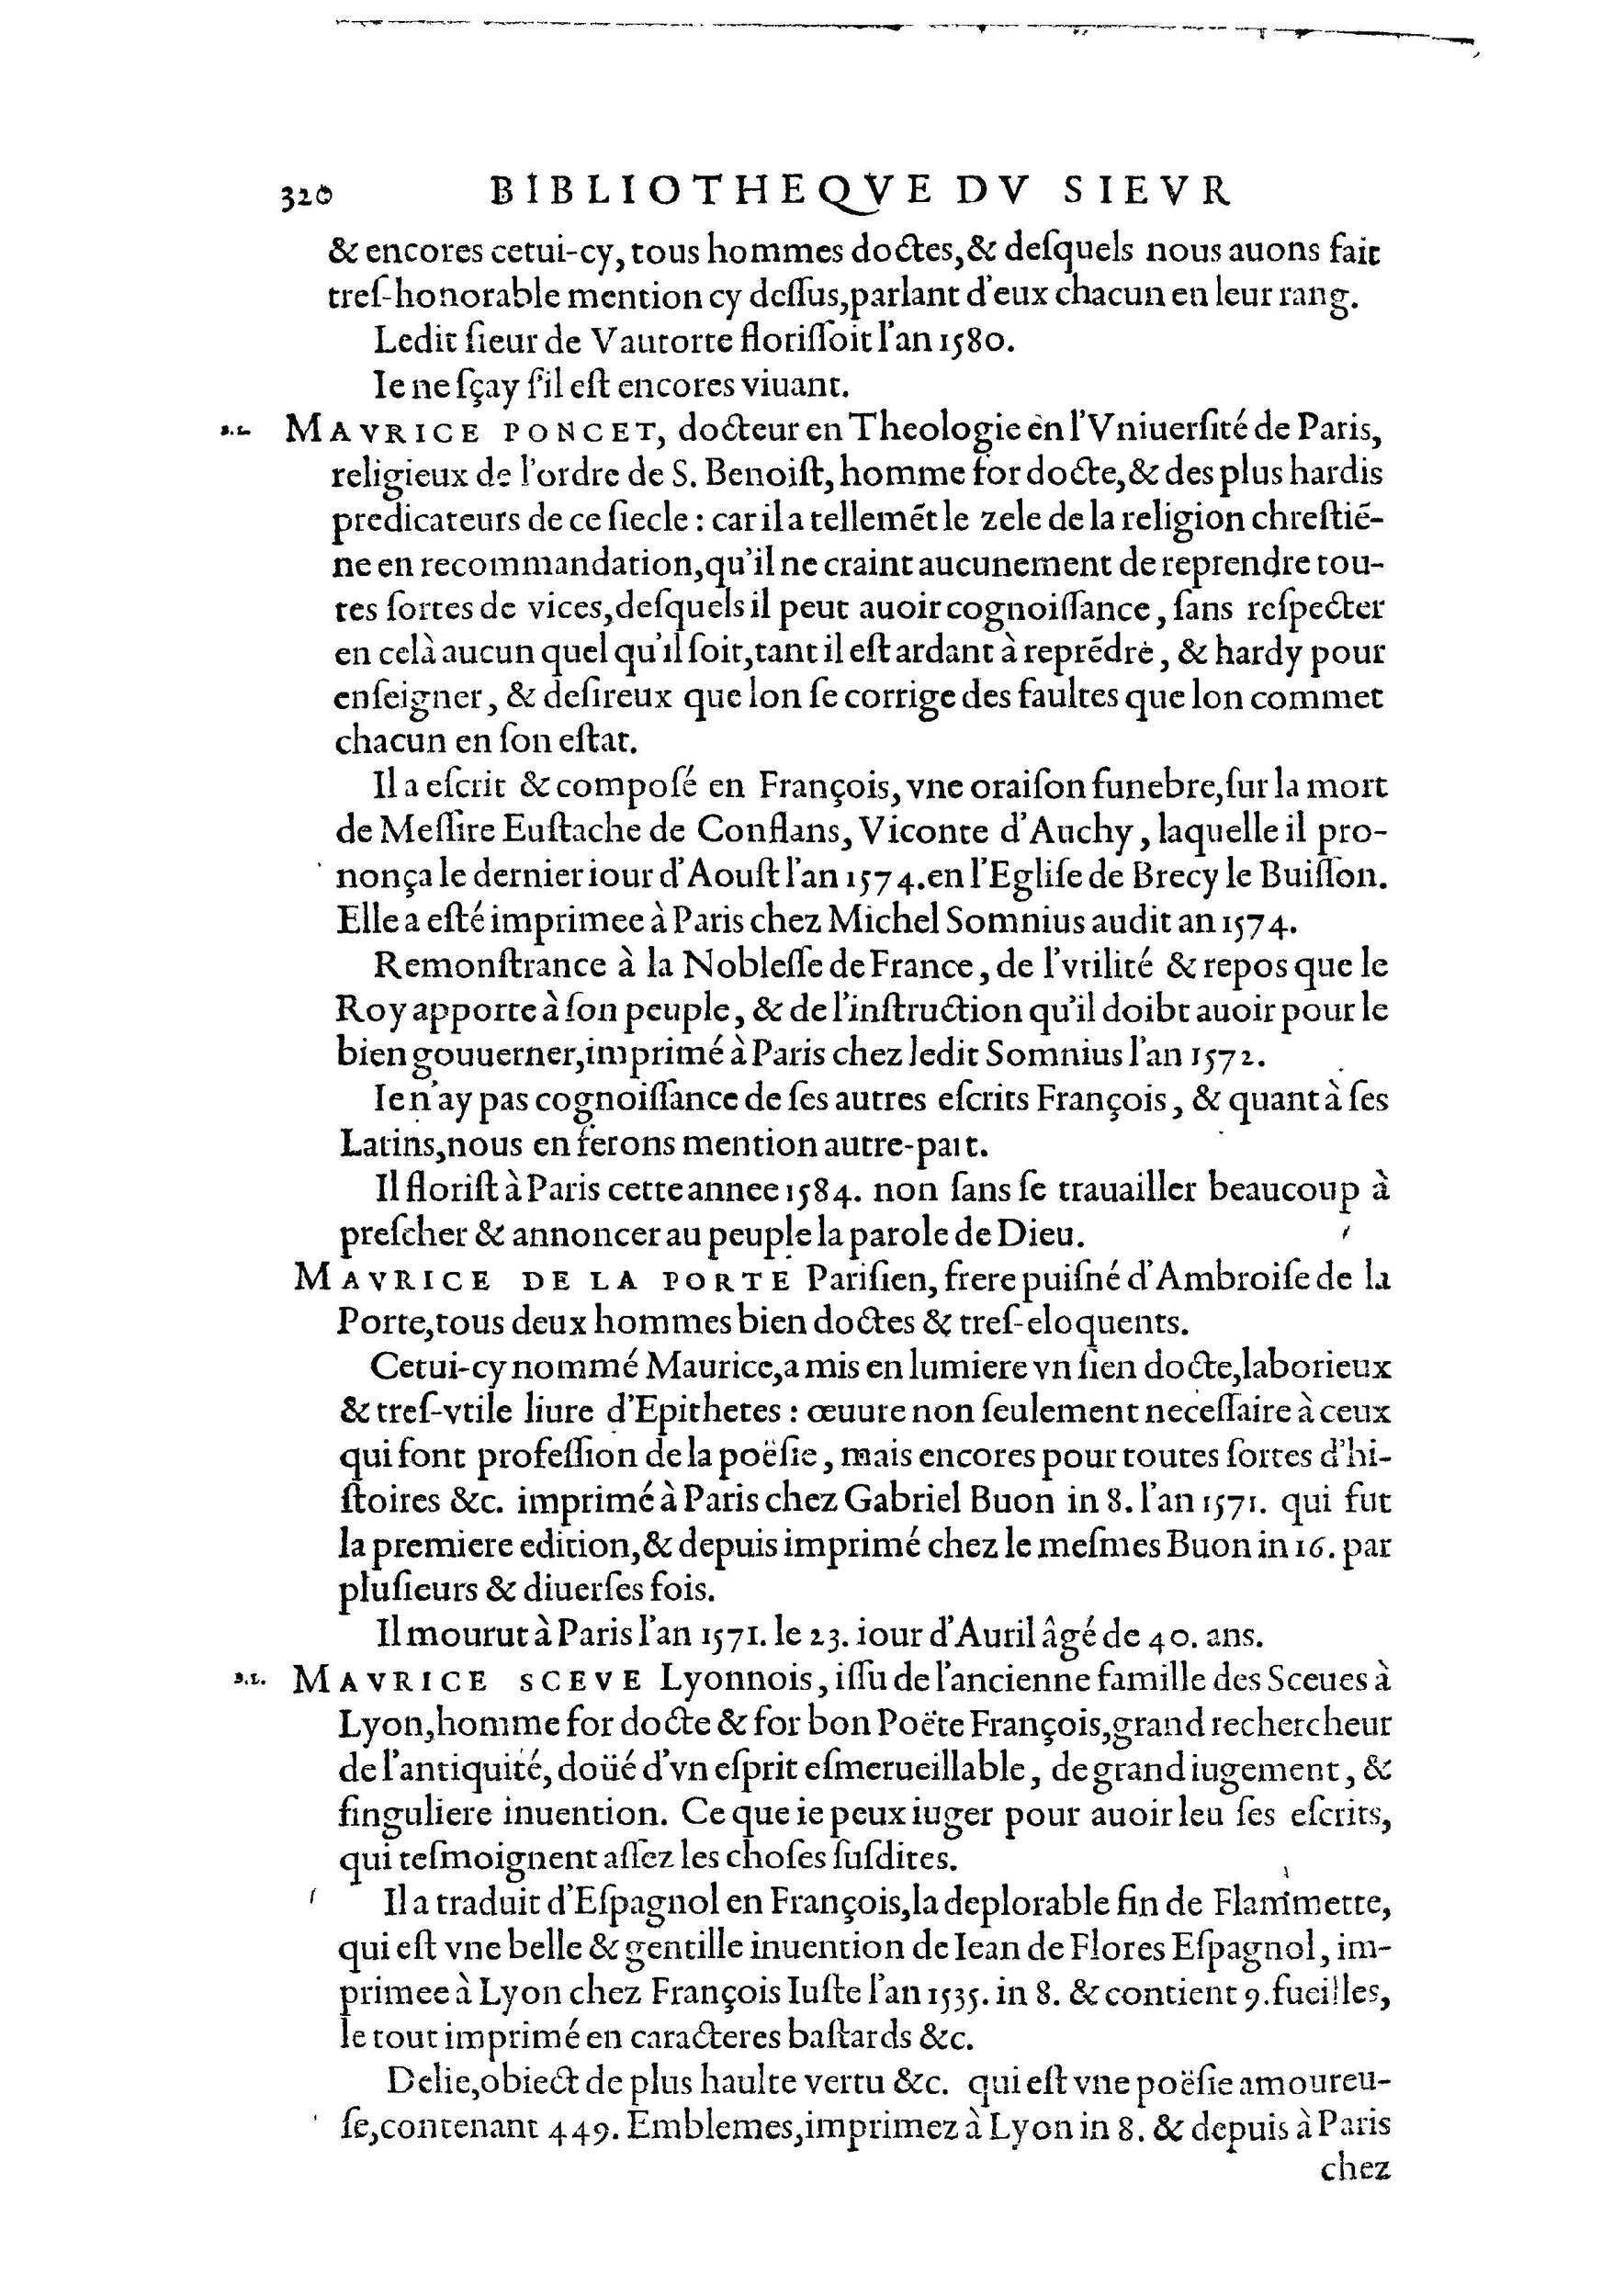 320 BIBLIOTHEQVE DV SIEVR
& encores cetui-cy, tous hommes doctes, & deſquels nous auons fait
treſ-honorable mention cy deſſus, parlant d'eux chacun en leur rang.
Ledit ſieur de Vautorte floriſſoit l'an 1580.
Ie ne ſçay ſ'il eſt encores viuant.
MAVRICE PONCET, docteur en Theologie en l'Vniuerſité de Paris,
religieux de l'ordre de S. Benoiſt, homme for docte, & des plus hardis
predicateurs de ce ſiecle : car il a tellemẽt le zele de la religion chreſtiẽ-
ne en recommandation, qu'il ne craint aucunement de reprendre tou-
tes ſortes de vices, deſquels il peut auoir cognoiſſance, ſans reſpecter
en celà aucun quel qu'il ſoit, tant il eſt ardant à reprẽdre, & hardy pour
enſeigner, & deſireux que lon ſe corrige des faultes que lon commet
chacun en ſon eſtat.
Il a eſcrit & compoſé en François, vne oraiſon funebre, ſur la mort
de Meſſire Euſtache de Conflans, Viconte d'Auchy, laquelle il pro-
nonça le dernier iour d'Aouſt l'an 1574. en l'Egliſe de Brecy le Buiſſon.
Elle a eſté imprimee à Paris chez Michel Somnius audit an 1574.
Remonſtrance à la Nobleſſe de France, de l'vtilité & repos que le
Roy apporte à ſon peuple, & de l'inſtruction qu'il doibt auoir pour le
bien gouuerner, imprimé à Paris chez ledit Somnius l'an 1572.
Ie n'ay pas cognoiſſance de ſes autres eſcrits François, & quant à ſes
Latins, nous en ferons mention autre-part.
Il floriſt à Paris cette annee 1584. non ſans ſe trauailler beaucoup à
preſcher & annoncer au peuple la parole de Dieu.
MAVRICE DE LA PORTE Pariſien, frere puiſné d'Ambroiſe de la
Porte, tous deux hommes bien doctes & treſ-eloquents.
Cetui-cy nommé Maurice, a mis en lumiere vn ſien docte, laborieux
& treſ-vtile liure d'Epithetes : œuure non ſeulement neceſſaire à ceux
qui font profeſſion de la poëſie, mais encores pour toutes ſortes d'hi-
ſtoires &c. imprimé à Paris chez Gabriel Buon in 8. l'an 1571. qui fut
la premiere edition, & depuis imprimé chez le meſmes Buon in 16. par
pluſieurs & diuerſes fois.
Il mourut à Paris l'an 1571. le 23. iour d'Auril âgé de 40. ans.
MAVRICE SCEVE Lyonnois, iſſu de l'ancienne famille des Sceues à
Lyon, homme for docte & for bon Poëte François, grand rechercheur
de l'antiquité, doüé d'vn eſprit eſmerueillable, de grand iugement, &
ſinguliere inuention. Ce que ie peux iuger pour auoir leu ſes eſcrits,
qui teſmoignent aſſez les choſes ſuſdites.
Il a traduit d'Eſpagnol en François, la deplorable fin de Flammette,
qui eſt vne belle & gentille inuention de Iean de Flores Eſpagnol, im-
primee à Lyon chez François Iuſte l'an 1535. in 8. & contient 9. fueilles,
le tout imprimé en caracteres baſtards &c.
Delie, obiect de plus haulte vertu &c. qui eſt vne poëſie amoureu-
ſe, contenant 449. Emblemes, imprimez à Lyon in 8. & depuis à Paris
chez